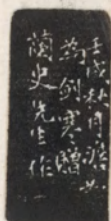 壬戌秋月
為劍寒贈
蘭史先生作